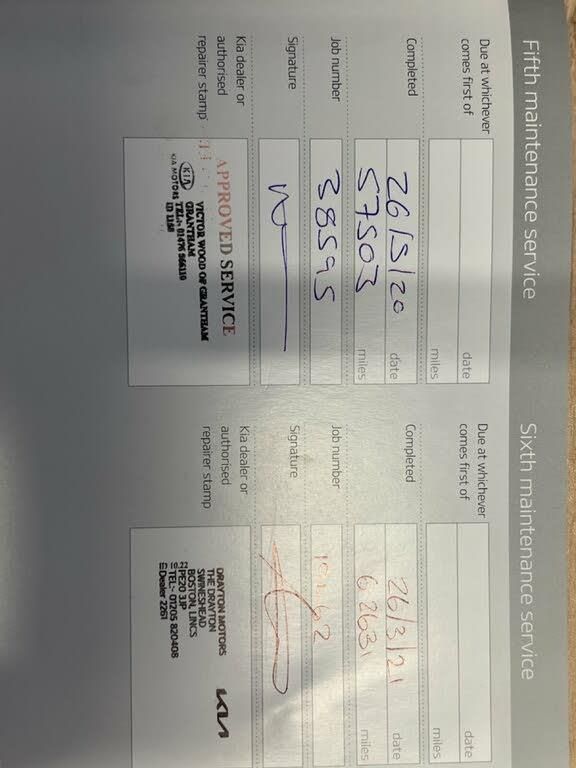 Fifth maintenance service
Due at whichever
comes first of
date
miles
Completed
26/5/20
date
57503
miles
Job number
38595
Signature
Kia dealer or
authorised
repairer stamp
APPROVED SERVICE
KIA
KIA MOTORS
VICTOR WOOD OF GRANTHAM
GRANTHAM
TEL:- 01476 566110
ID 1158
Sixth maintenance service
Due at whichever
comes first of
date
miles
Completed
26/3/21
date
62631
miles
Job number
Signature
Kia dealer or
authorised
repairer stamp
DRAYTON MOTORS
THE DRAYTON
SWINESHEAD
BOSTON, LINCS
PE20 3JP
TEL:- 01205 820408
Dealer 2261
KIA